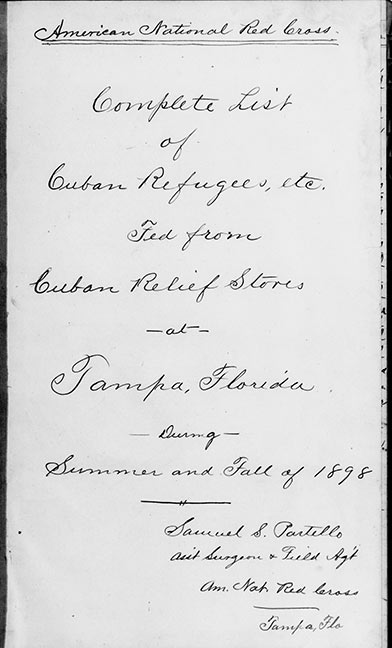 American National Red Cross.
Complete List
of
Cuban Refugees, etc.
Fed from
Cuban Relief Stores
—at—
Tampa, Florida
—During—
Summer and Fall of 1898
Samuel S. Partello
Asst Surgeon & Field Agt
Am. Nat. Red Cross
Tampa, Fla